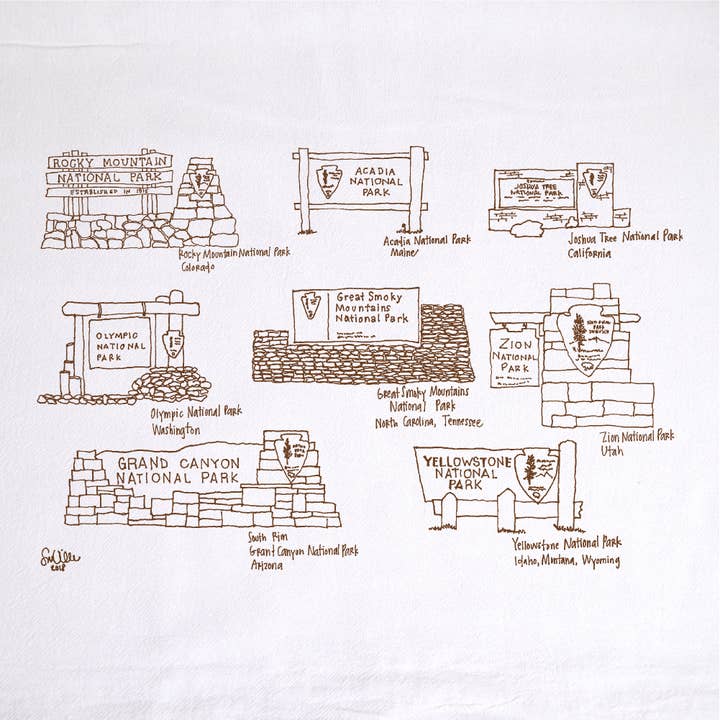 ROCKY MOUNTAIN
NATIONAL PARK
ESTABLISHED IN 1915
Rocky Mountain National Park
Colorado
ACADIA
NATIONAL
PARK
Acadia National Park
Maine
JOSHUA TREE
NATIONAL PARK
Joshua Tree National Park
California
OLYMPIC
NATIONAL
PARK
Olympic National Park
Washington
Great Smoky
Mountains
National Park
Great Smoky Mountains
National Park
North Carolina, Tennessee
ZION
NATIONAL
PARK
NATIONAL
PARK
SERVICE
Zion National Park
Utah
GRAND CANYON
NATIONAL PARK
South Rim
Grant Canyon National Park
Arizona
YELLOWSTONE
NATIONAL
PARK
Yellowstone National Park
Idaho, Montana, Wyoming
2018